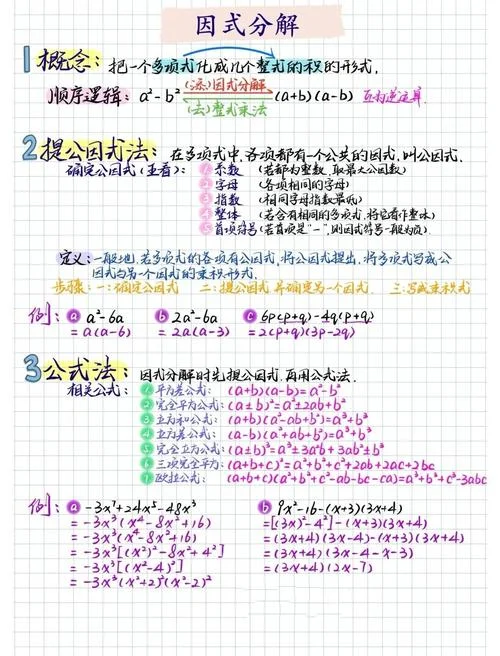 因式分解
1 概念：把一个多项式化成几个整式的积的形式.
顺序逻辑：a²-b² (添)因式分解 (去)整式乘法 (a+b)(a-b) 互为逆运算.
2 提公因式法：在多项式中,各项都有一个公共的因式,叫公因式.
确定公因式(五看)：1 系数 (若都为整数,取最大公因数)
2 字母 (各项相同的字母)
3 指数 (相同字母指数最低)
4 整体 (若含有相同的多项式,将它看作整体)
5 首项符号(若首项是"-",则因式符号一般为负)
定义：一般地,若多项式的各项有公因式,将公因式提出,将多项式写成公
因式与另一个因式的乘积形式.
步骤：一：确定公因式 二：提公因式并确定另一个因式 三：写成乘积式
例：a a²-6a b 2a²-6a c 6p(p+q)-4q(p+q)
=a(a-6) =2a(a-3) =2(p+q)(3p-2q)
3 公式法：因式分解时先提公因式,再用公式法.
相关公式：1 平方差公式：(a+b)(a-b)=a²-b²
2 完全平方公式：(a±b)²=a²±2ab+b²
3 立方和公式：(a+b)(a²-ab+b²)=a³+b³
4 立方差公式：(a-b)(a²+ab+b²)=a³+b³
5 完全立方公式：(a±b)³=a³±3a²b+3ab²±b³
6 三项完全平方：(a+b+c)²=a²+b²+c²+2ab+2ac+2bc
7 欧拉公式：(a+b+c)(a²+b²+c²-ab-bc-ca)=a³+b³+c³-3abc
例：a -3x⁷+24x⁵-48x³ b 9x²-16-(x+3)(3x+4)
=-3x³(x⁴-8x²+16) =[(3x)²-4²]-(x+3)(3x+4)
=-3x³(x⁴-8x²+16) =(3x+4)(3x-4)-(x+3)(3x+4)
=-3x³[(x²)²-8x²+4²] =(3x+4)(3x-4-x-3)
=-3x³[(x²-4)²] =(3x+4)(2x-7)
=-3x³(x+2)²(x-2)²